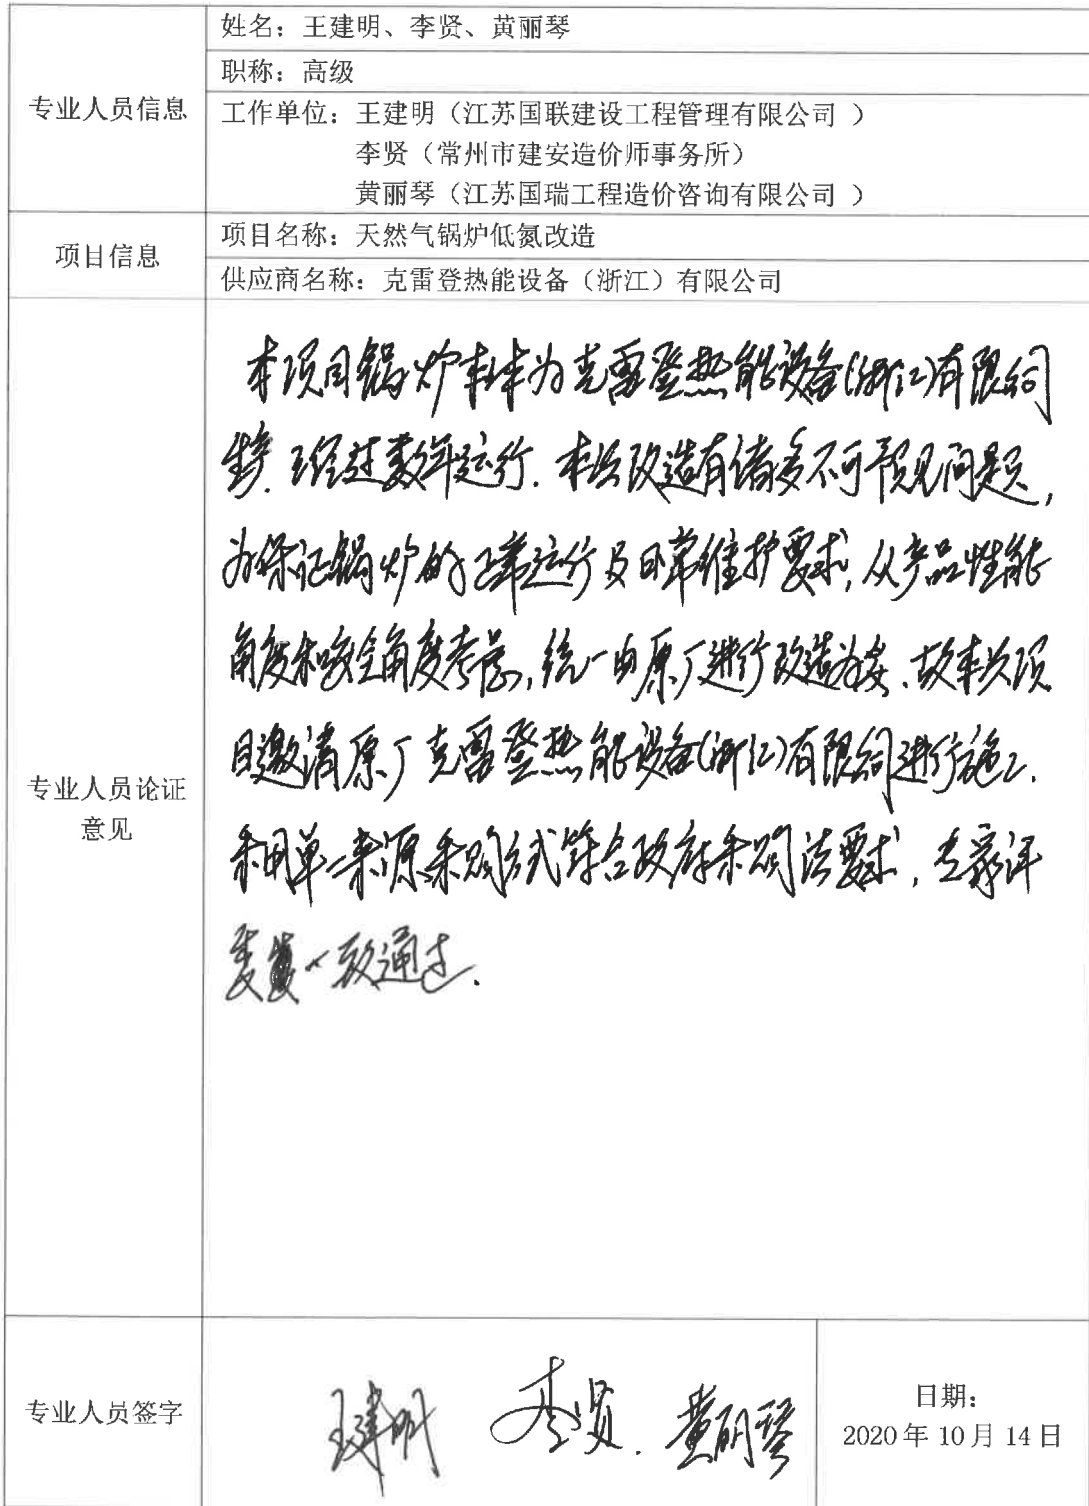 专业人员信息
姓名：王建明、李贤、黄丽琴
职称：高级
工作单位：王建明（江苏国联建设工程管理有限公司 ）
李贤（常州市建安造价师事务所）
黄丽琴（江苏国瑞工程造价咨询有限公司 ）
项目信息
项目名称：天然气锅炉低氮改造
供应商名称：克雷登热能设备（浙江）有限公司
专业人员论证
意见
本项目锅炉本体为克雷登热能设备(浙江)有限公司
生产.经过数年运行.本次改造有诸多不可预见问题,
为保证锅炉的正常运行及日常维护要求,从产品性能
角度和安全角度考虑,统一由原厂进行改造为妥.故本次项
目邀请原厂克雷登热能设备(浙江)有限公司进行施工.
采用单一来源采购方式符合政府采购法要求,专家评
委一致通过.
专业人员签字
王建明 李贤. 黄丽琴
日期：
2020 年 10 月 14 日